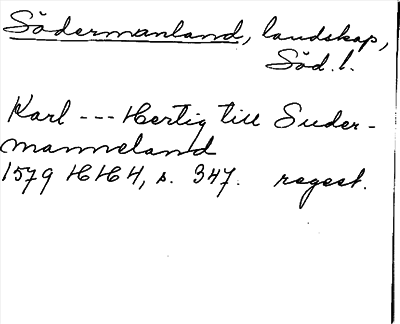 Södermanland, landskap,
Söd.l.
Karl --- Hertig till Suder-
manneland
1579 HH4, s. 347. regest.